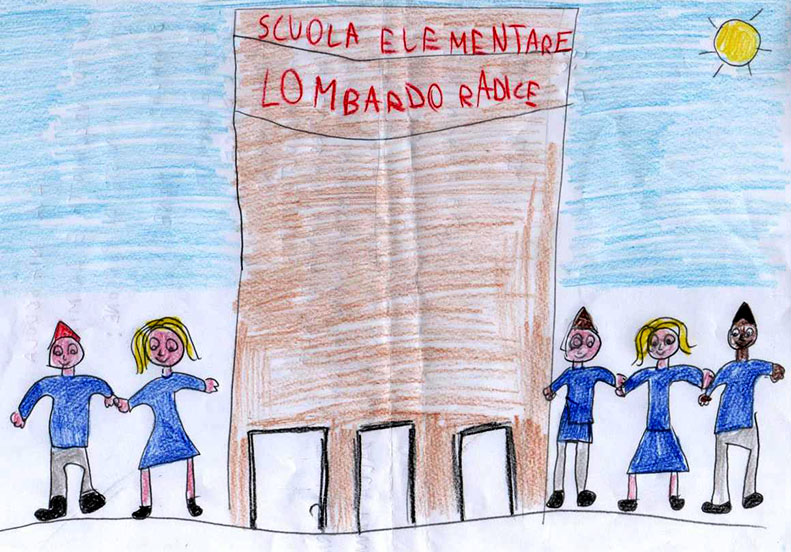 SCUOLA ELEMENTARE
LOMBARDO RADICE